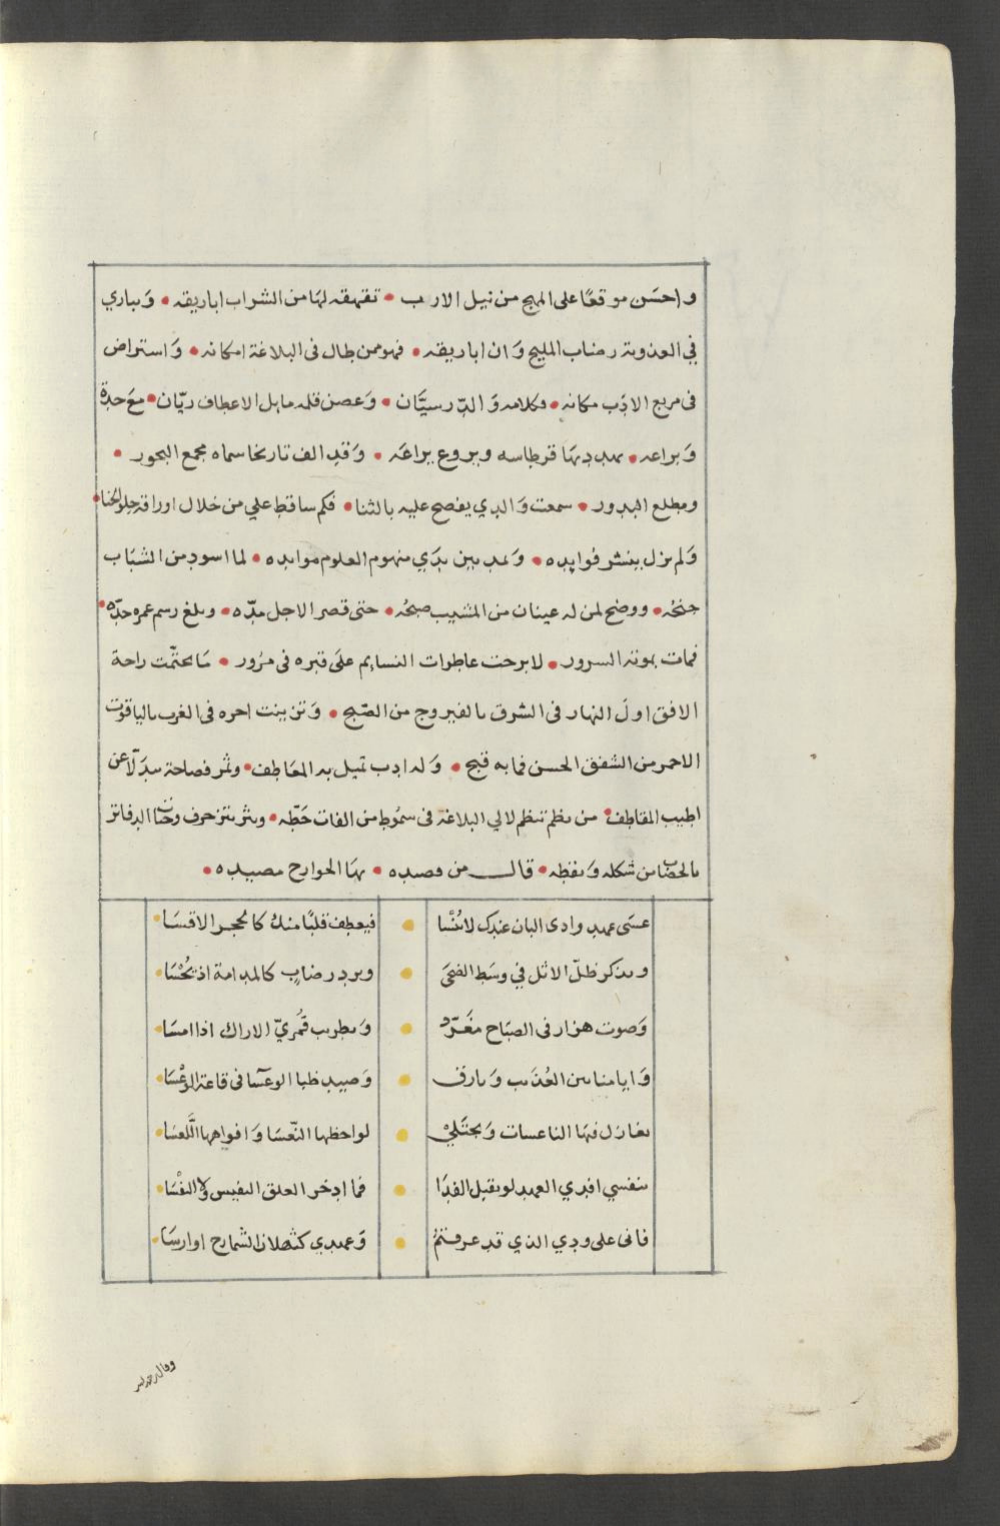 واحسَن موقعًا على المهج من نيل الارب • تقهقه لها من الشراب اباريقه • وَيباري
في العذوبة رضاب المليح وَان اباريقه • فهو ممن طال فى البلاغة امكانه • وَاستراض
فى مربع الادَب مكانه • فكلامه وَ الدّر سيَّان • وَغصن قلمه مايل الاعطاف ريّان • معَ حدة
وَبراعه • يهدد بهَا قرطاسه ويروع يراعَه • وَقد الف تاريخا سماه مجمع البحور •
ومطلع البدور • سمعت وَالدي يفصح عليه بالثنا • فكم ساقط علي من خلال اوراقه حلو الجنا •
وَلم يزل ينشر فوايده • وَيمد بين يدَي منهوم العلوم موايده • لما اسود من الشبَاب
جنحُه • ووضح لمن له عينان من المشيب صبحُه • حتى قصر الاجل مدّه • وبلغ رسم عمره حدّه •
فمات بموته السرور • لا برحت عاطرات النسايم علَى قبره فى مرُور • مَا تختّمت راحة
الافق اولَ النهار فى الشرق بالفيروج من الصّبح • وَتزينت اخره فى الغرب بالياقوت
الاحمر من الشفق الحسن فما به قبح • وَله ادب تميل به المعَاطف • وثمر فصاحة سِدَلّا عن
اطيب المقاطف • من نظم تنظم لالي البلاغة فى سمُوط من الفات خَطّه • ونثر يتزحرف وجنات الدفاتر
بالخضاب من شكله وَنقطِه • قال من قصيده • بهَا الجوارح مصيده •
عسَى عهد وادى البان عندك لا يُنْسَا • فيعطف قلبًا منك كالحجر الاقسَا •
ويذكر ظلّ الاثل في وسَط الضحَى • وبرد رضابٍ كالمدامة اذ تُحْسَا •
وَصوت هزار فى الصبَاح مغَرّد • وَيطرب قُمريّ الاراك اذا امسَا •
وَايامنا بين العُذَيب وَبارق • وَصيد ظبا الوعسَا فى قاعة الوعْسَا •
نغازل فيهَا الناعسات وَنجتَلي • لواحظها النّعسَا وَافواهها اللَّعسَا •
بنفسي افدي العهد لو يقبل الفدَا • فما ادخر العلق النفيس ولا النفْسَا •
فانى على ودي الذي قد عرفتمُ • وَعهدي كثهلان الشمارخ اوارسَا •
وقال رحمه الله